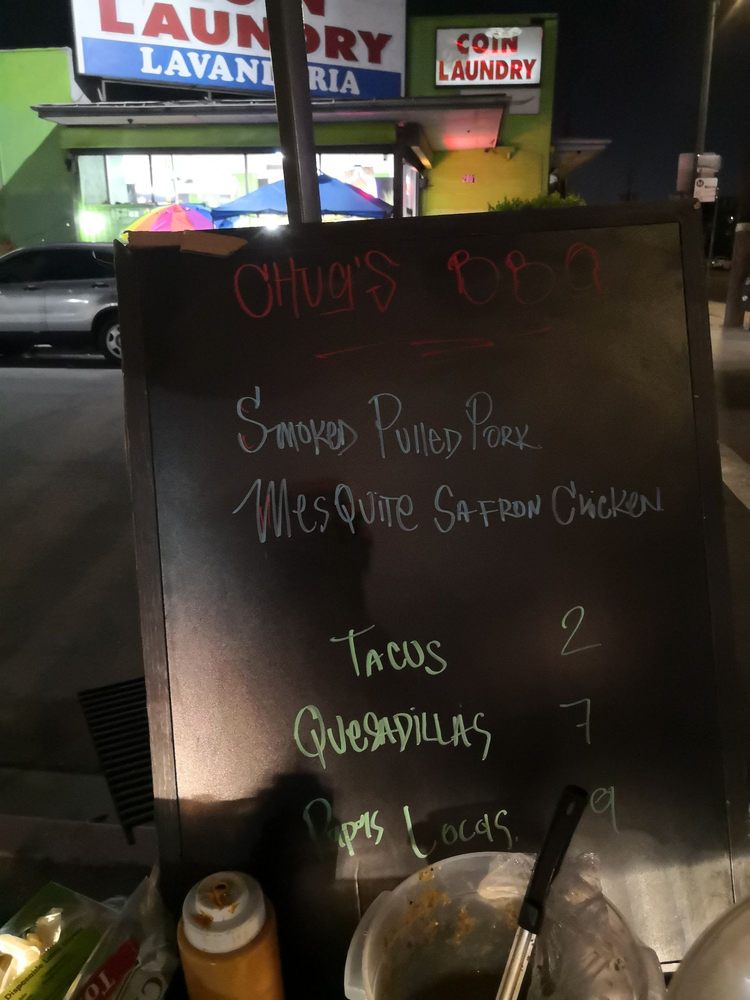 LAUNDRY
LAVANDERIA
COIN
LAUNDRY
CHUG'S BBQ
SMOKED PULLED PORK
MESQUITE SAFFRON CHICKEN
TACUS 2
QUESADILLAS 7
PAPAS LOCAS. 9